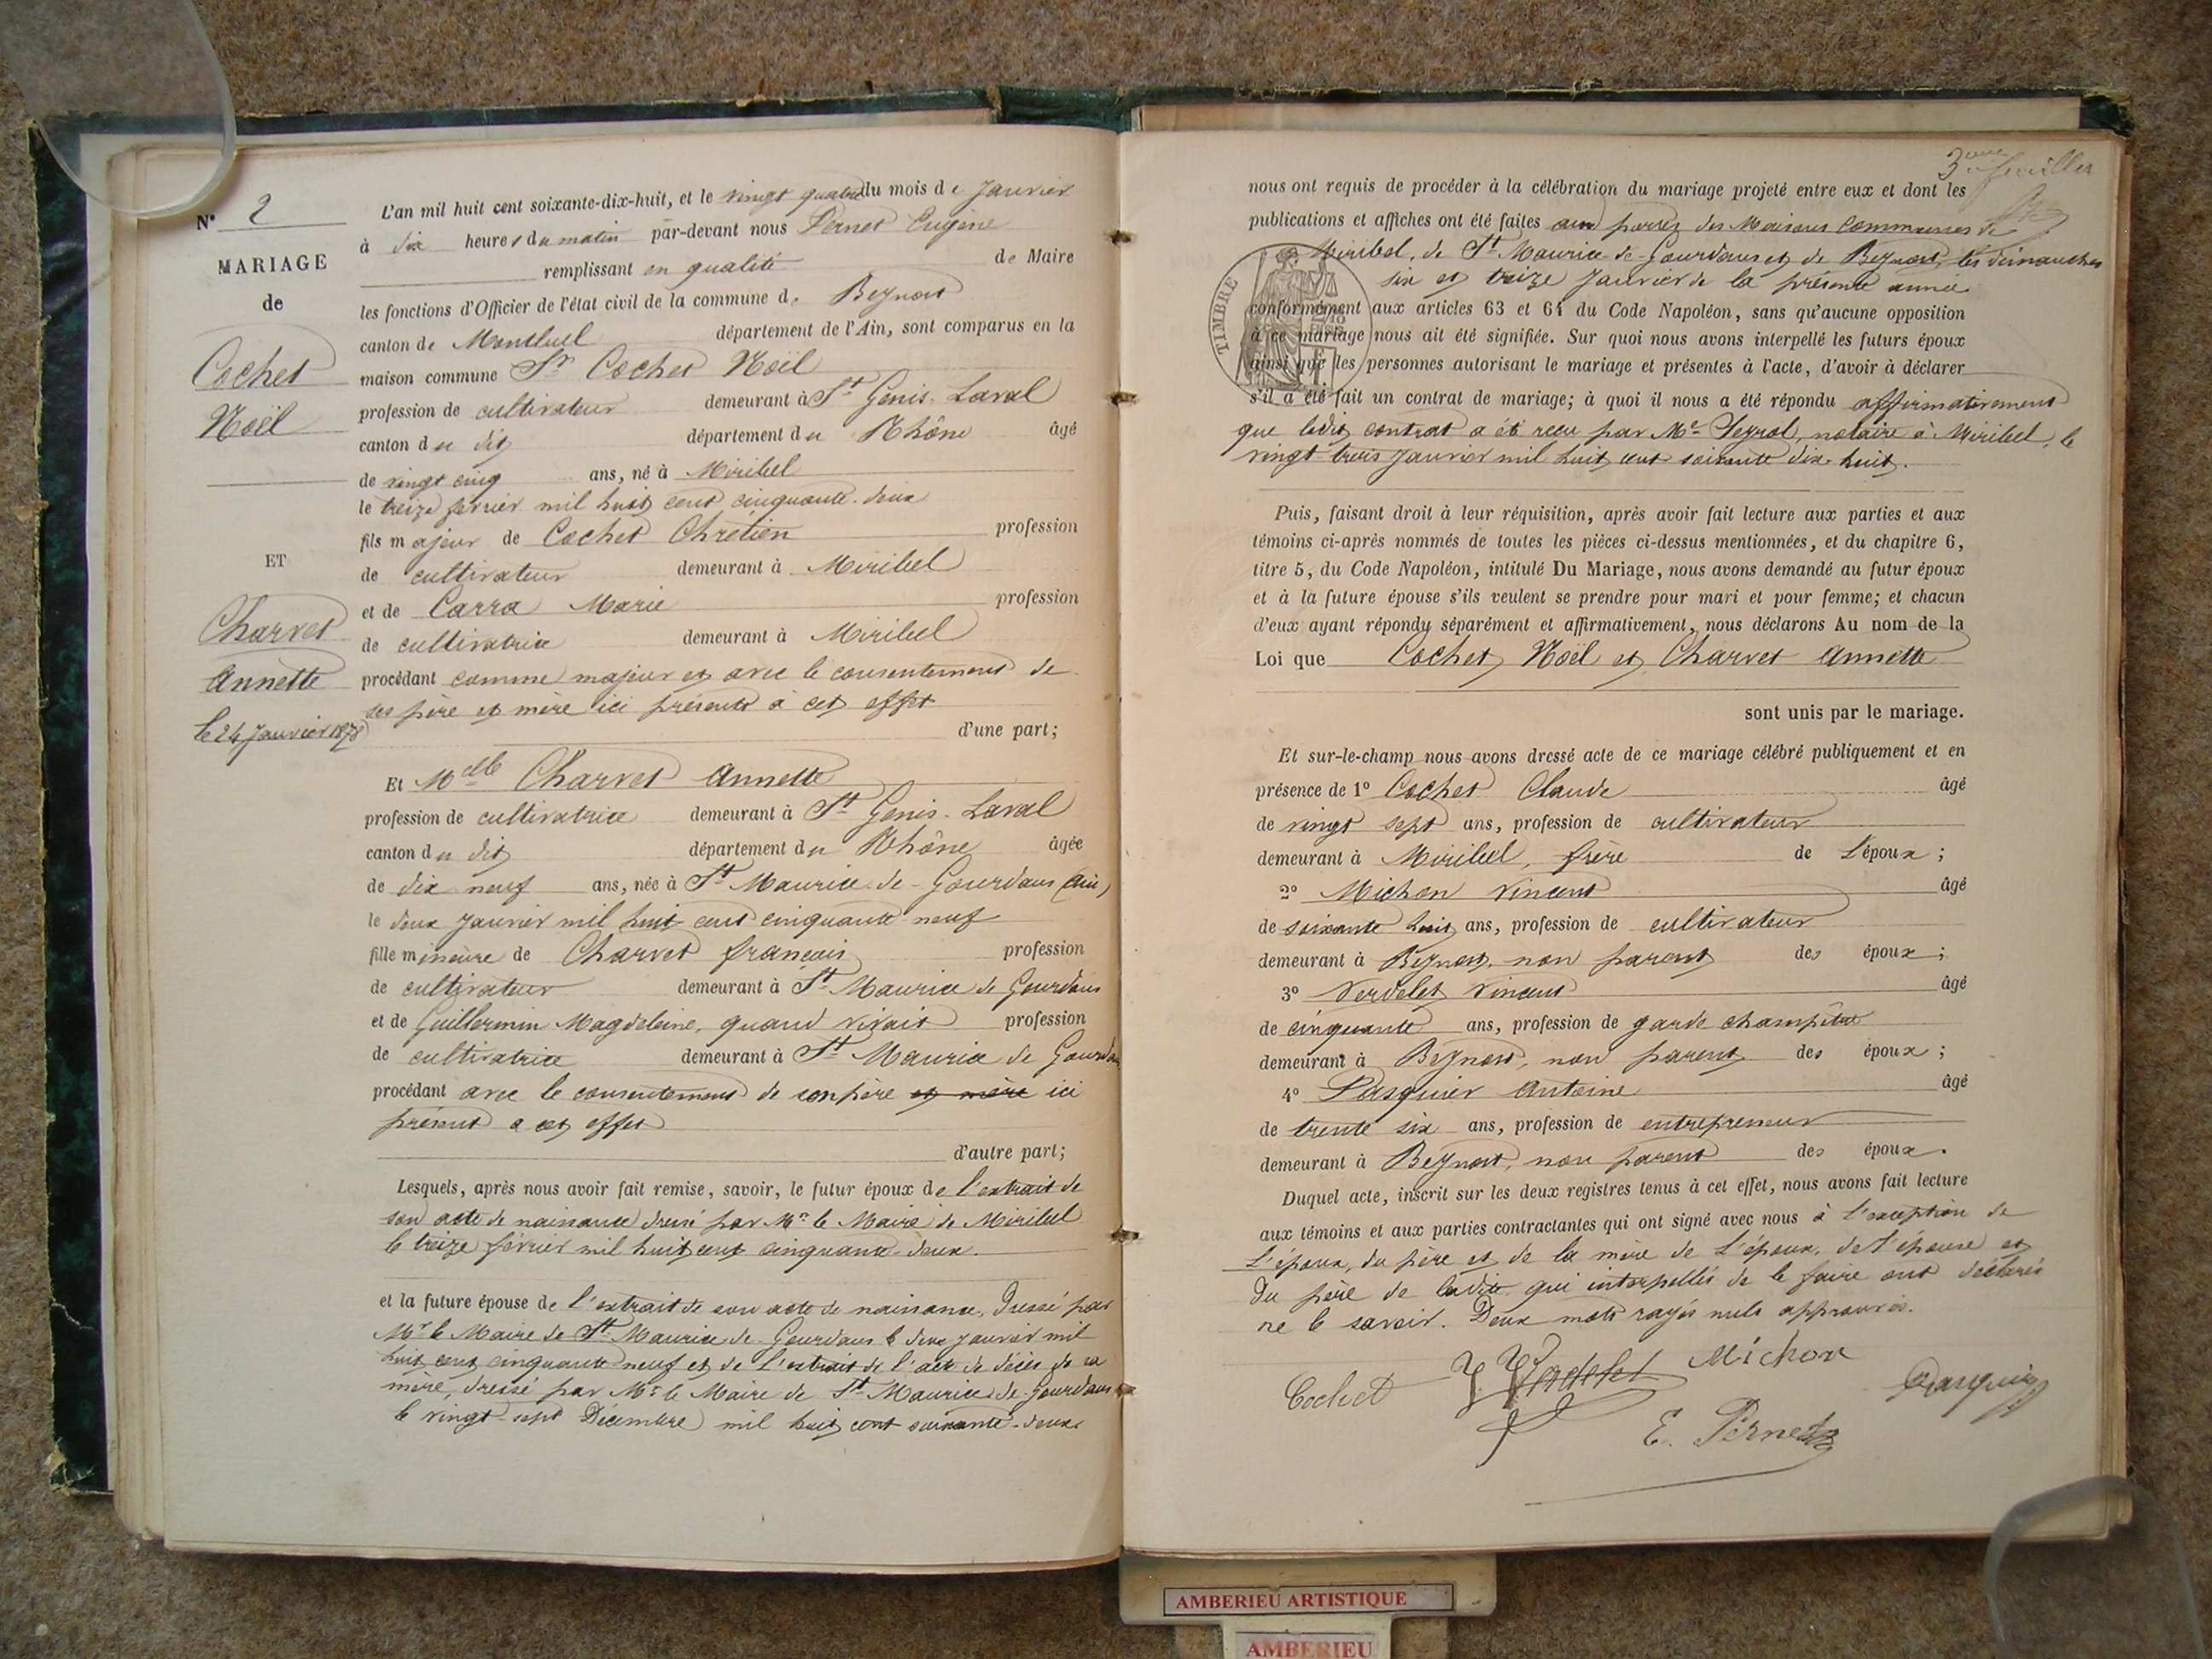 N° 2
MARIAGE
de
Cochet
Noël
ET
Charvet
Annette
le 24 Janvier 1878
L'an mil huit cent soixante-dix-huit, et le vingt quatre du mois de Janvier
à dix heures du matin par-devant nous Pernet Eugène
remplissant en qualité de Maire
les fonctions d'Officier de l'état civil de la commune de Beynost
canton de Montluel département de l'Ain, sont comparus en la
maison commune Sr Cochet Noël
profession de cultivateur demeurant à St Genis-Laval
canton du dit département du Rhône âgé
de vingt cinq ans, né à Miribel
le treize février mil huit cent cinquante-deux
fils majeur de Cochet Chrétien profession
de cultivateur demeurant à Miribel
et de Carra Marie profession
de cultivatrice demeurant à Miribel
procédant comme majeur et avec le consentement de
ses père et mère ici présents à cet effet
d'une part;
Et Melle Charvet Annette
profession de cultivatrice demeurant à St Genis-Laval
canton du dit département du Rhône âgée
de dix neuf ans, née à St Maurice-de-Gourdans (Ain)
le deux Janvier mil huit cent cinquante neuf
fille mineure de Charvet françois profession
de cultivateur demeurant à St Maurice de Gourdans
et de Guillermin Magdeleine, quand vivait profession
de cultivatrice demeurant à St Maurice de Gourdans
procédant avec le consentement de son père et mère ici
présent à cet effet
d'autre part;
Lesquels, après nous avoir fait remise, savoir, le futur époux de l'extrait de
son acte de naissance dressé par Mr le Maire de Miribel
le treize février mil huit cent cinquante-deux.
et la future épouse de l'extrait de son acte de naissance, dressé par
Mr le Maire de St Maurice-de-Gourdans le deux janvier mil
huit cent cinquante neuf et de l'extrait de l'acte de décès de sa
mère, dressé par Mr le Maire de St Maurice-de-Gourdans
le vingt-sept Décembre mil huit cent soixante-deux.
3eme feuillet
nous ont requis de procéder à la célébration du mariage projeté entre eux et dont les
publications et affiches ont été faites aux portes des Maisons Communes de
Miribel, de St Maurice-de-Gourdans et de Beynost, les dimanches
six et treize Janvier de la présente année
TIMBRE
conformément aux articles 63 et 64 du Code Napoléon, sans qu'aucune opposition
à ce mariage nous ait été signifiée. Sur quoi nous avons interpellé les futurs époux
ainsi que les personnes autorisant le mariage et présentes à l'acte, d'avoir à déclarer
s'il a été fait un contrat de mariage; à quoi il nous a été répondu affirmativement
que ledit contrat a été reçu par Me Seyrol, notaire à Miribel, le
vingt-trois Janvier mil huit cent soixante dix-huit.
Puis, faisant droit à leur réquisition, après avoir fait lecture aux parties et aux
témoins ci-après nommés de toutes les pièces ci-dessus mentionnées, et du chapitre 6,
titre 5, du Code Napoléon, intitulé Du Mariage, nous avons demandé au futur époux
et à la future épouse s'ils veulent se prendre pour mari et pour femme; et chacun
d'eux ayant répondu séparément et affirmativement, nous déclarons Au nom de la
Loi que Cochet Noël et Charvet Annette
sont unis par le mariage.
Et sur-le-champ nous avons dressé acte de ce mariage célébré publiquement et en
présence de 1° Cochet Claude âgé
de vingt sept ans, profession de cultivateur
demeurant à Miribel, frère de L'époux;
2° Michon Vincent âgé
de soixante huit ans, profession de cultivateur
demeurant à Beynost, non parent des époux;
3° Verdelet Vincent âgé
de cinquante ans, profession de garde champêtre
demeurant à Beynost, non parent des époux;
4° Pasquier Antoine âgé
de trente six ans, profession de entrepreneur
demeurant à Beynost, non parent des époux.
Duquel acte, inscrit sur les deux registres tenus à cet effet, nous avons fait lecture
aux témoins et aux parties contractantes qui ont signé avec nous à l'exception de
L'époux, du père et de la mère de L'époux, de l'épouse et
du père de ladite qui interpellés de le faire ont déclarés
ne le savoir. Deux mots rayés nuls approuvés.
Cochet V Verdelet Michon Pasquier
E. Pernet
AMBERIEU ARTISTIQUE
AMBERIEU